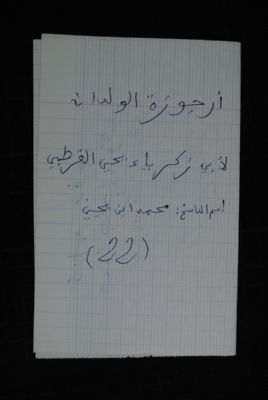 أرجوزة الولدان
لأبي زكرياء يحيى القرطبي
اسم الناسخ: محمد ابن يحيى
(22)